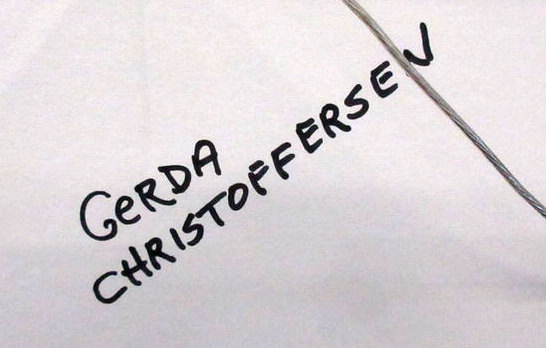 GeRDA
CHRISTOFFERSEN